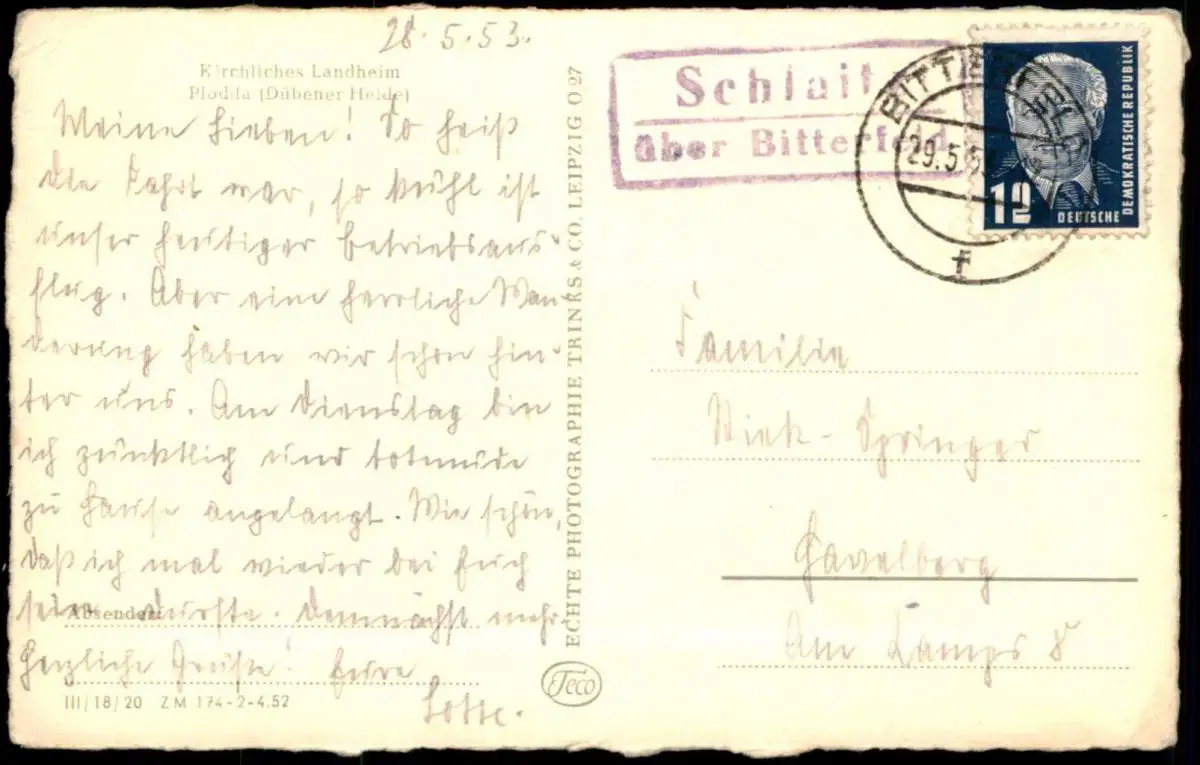 28.5.53.
Kirchliches Landheim
Plodda (Dübener Heide)
Meine Lieben! So heiß
die Fahrt war, so kühl ist
unser heutiger Betriebsaus-
flug. Aber eine herrliche Wan-
derung haben wir schon hin-
ter uns. Am Dienstag bin
ich pünktlich und totmüde
zu Hause angelangt. Wie schön,
daß ich mal wieder bei Euch
sein durfte. Demnächst mehr.
Absender:
Herzliche Grüße! Eure
Lotte.
III/18/20 ZM 174-2-4.52
ECHTE PHOTOGRAPHIE TRINKS & CO. LEIPZIG O 27
Teco
Schlait
über Bitterfeld
BITTERFELD
29.5.5
f
12
DEUTSCHE
DEMOKRATISCHE REPUBLIK
Familie
Springer
Havelberg
Am Camps 8